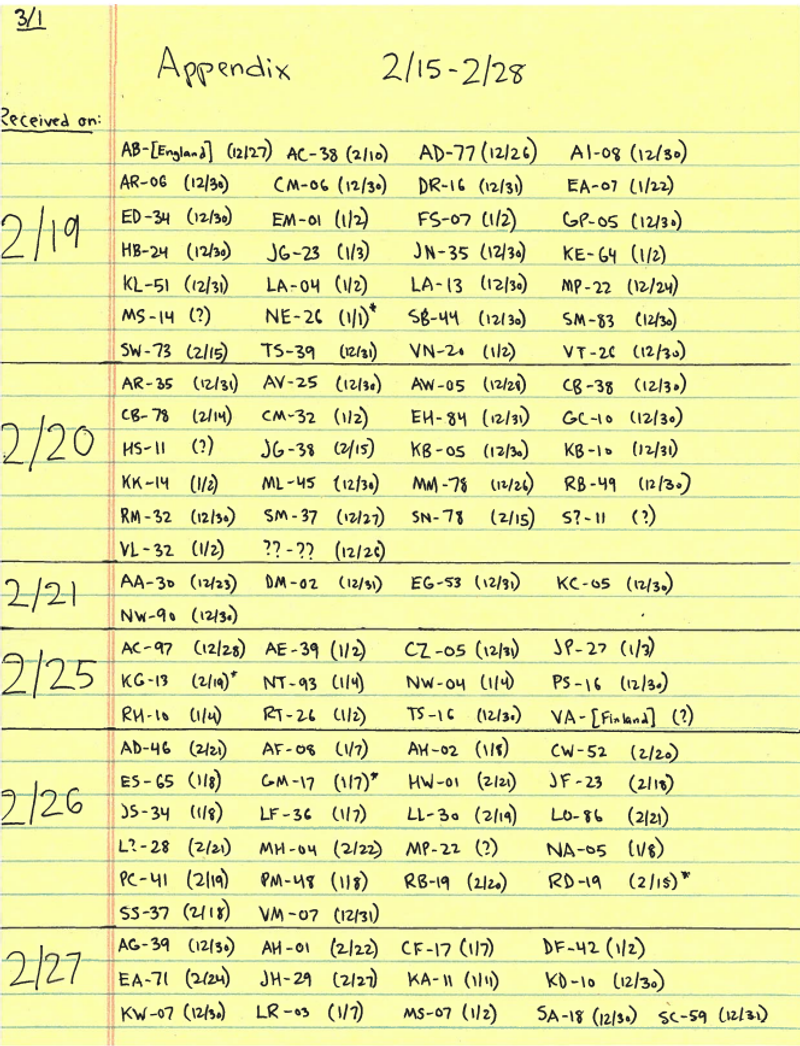 3/1
Appendix 2/15-2/28
Received on:
2/19
AB-[England] (12/27) AC-38 (2/10) AD-77 (12/26) AI-08 (12/30)
AR-06 (12/30) CM-06 (12/30) DR-16 (12/31) EA-07 (1/22)
ED-34 (12/30) EM-01 (1/2) FS-07 (1/2) GP-05 (12/30)
HB-24 (12/30) JG-23 (1/3) JN-35 (12/30) KE-64 (1/2)
KL-51 (12/31) LA-04 (1/2) LA-13 (12/30) MP-22 (12/24)
MS-14 (?) NE-26 (1/1)* SB-44 (12/30) SM-83 (12/30)
SW-73 (2/15) TS-39 (12/31) VN-20 (1/2) VT-26 (12/30)
2/20
AR-35 (12/31) AV-25 (12/30) AW-05 (12/28) CB-38 (12/30)
CB-78 (2/14) CM-32 (1/2) EH-84 (12/31) GC-10 (12/30)
HS-11 (?) JG-38 (2/15) KB-05 (12/30) KB-10 (12/31)
KK-14 (1/2) ML-45 (12/30) MM-78 (12/26) RB-49 (12/30)
RM-32 (12/30) SM-37 (12/27) SN-78 (2/15) S?-11 (?)
VL-32 (1/2) ??-?? (12/26)
2/21
AA-30 (12/23) DM-02 (12/31) EG-53 (12/31) KC-05 (12/30)
NW-90 (12/30)
2/25
AC-97 (12/28) AE-39 (1/2) CZ-05 (12/31) JP-27 (1/3)
KG-13 (2/19)* NT-93 (1/4) NW-04 (1/4) PS-16 (12/30)
RH-10 (1/4) RT-26 (1/2) TS-16 (12/30) VA-[Finland] (?)
2/26
AD-46 (2/21) AF-08 (1/7) AH-02 (1/8) CW-52 (2/20)
ES-65 (1/8) GM-17 (1/7)* HW-01 (2/21) JF-23 (2/18)
JS-34 (1/8) LF-36 (1/7) LL-30 (2/19) LO-86 (2/21)
L?-28 (2/21) MH-04 (2/22) MP-22 (?) NA-05 (1/8)
PC-41 (2/19) PM-48 (1/8) RB-19 (2/20) RD-19 (2/15)*
SS-37 (2/18) VM-07 (12/31)
2/27
AG-39 (12/30) AH-01 (2/22) CF-17 (1/7) DF-42 (1/2)
EA-71 (2/24) JH-29 (2/27) KA-11 (1/11) KD-10 (12/30)
KW-07 (12/30) LR-03 (1/7) MS-07 (1/2) SA-18 (12/30) SC-59 (12/31)